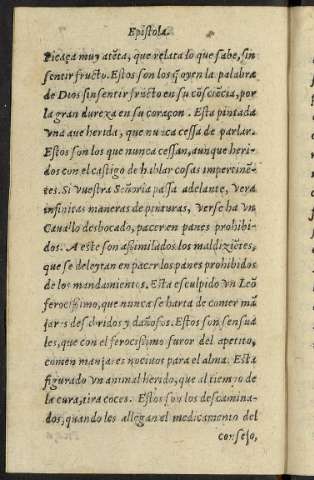 Epistola.
Picaça muy atẽta, que relata lo que sabe, sin
sentir fructo. Estos son los q̃ oyen la palabra
de Dios sin sentir fructo en su cõsciẽcia, por
la gran dureza en su coraçon. Esta pintada
vna aue herida, que nunca cessa de parlar.
Estos son los que nunca cessan, aunque heri-
dos con el castigo de hablar cosas impertinẽ-
tes. Si vuestra Señoria passa adelante, vera
infinitas maneras de pinturas, verse ha vn
Cauallo desbocado, pacer en panes prohibi-
dos. A este son assimilados los maldiziẽtes,
que se deleytan en pacer los panes prohibidos
de los mandamientos. Esta esculpido vn Leõ
ferocissimo, que nunca se harta de comer mã
jares desabridos y dañosos. Estos son sensua
les, que con el ferocissimo furor del apetito,
comen manjares nociuos para el alma. Esta
figurado vn animal herido, que al tiempo de
la cura, tira coces. Estos son los descamina-
dos, quando les allegan el medicamento del
consejo,